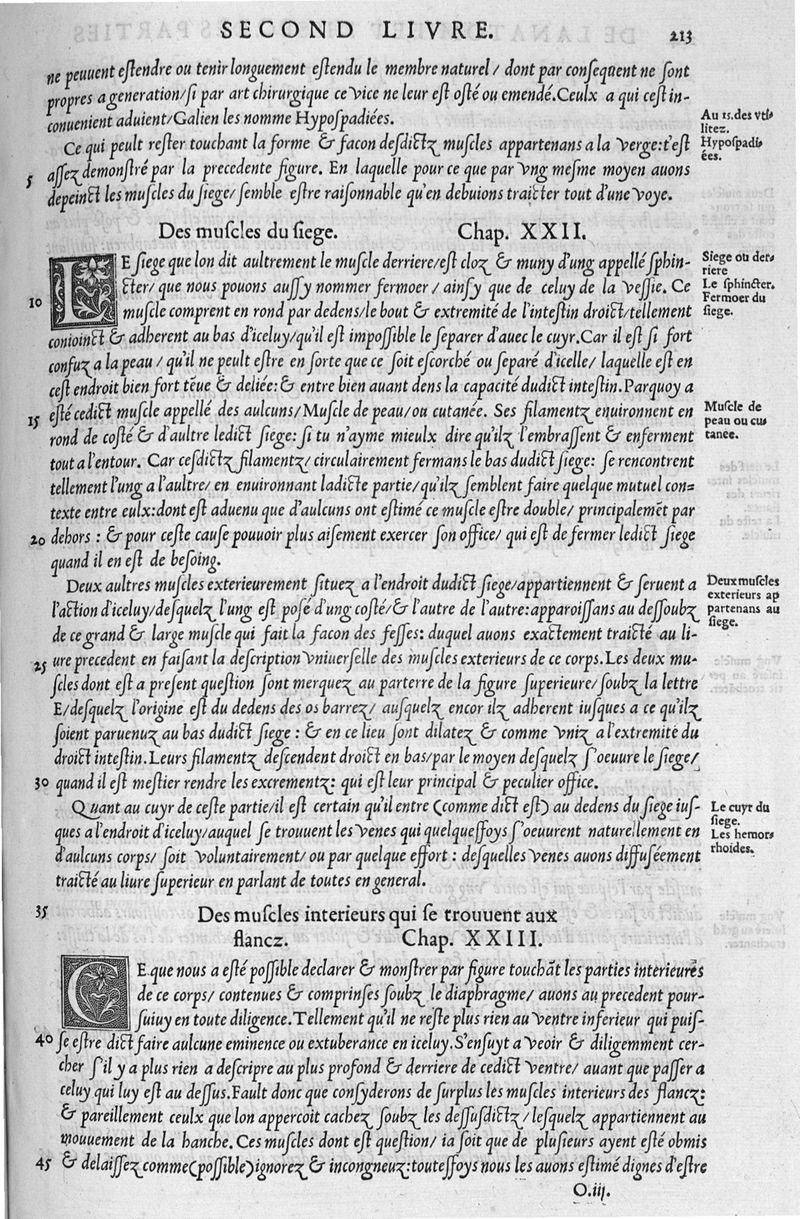 SECOND LIVRE. 213
ne peuuent eſtendre ou tenir longuement eſtendu le membre naturel/ dont par conſequent ne ſont
propres a generation/ſi par art chirurgique ce vice ne leur eſt oſté ou emendé. Ceulx a qui ceſt in-
conuenient aduient/Galien les nomme Hypoſpadiées.
Au 15. des vti-
litez.
Hypoſpadi-
ées.
Ce qui peult reſter touchant la forme & facon deſdictz muſcles appartenans a la verge: t'eſt
aſſez demonſtré par la precedente figure. En laquelle pour ce que par vng meſme moyen auons
5
depeinct les muſcles du ſiege/ ſemble eſtre raiſonnable qu'en debuions traicter tout d'une voye.
Des muſcles du ſiege. Chap. XXII.
LE ſiege que lon dit aultrement le muſcle derriere/eſt cloz & muny d'ung appellé ſphin-
cter/ que nous pouons auſſy nommer fermoer/ ainſy que de celuy de la veſſie. Ce
10 muſcle comprent en rond par dedens/le bout & extremité de l'inteſtin droict/tellement
conioinct & adherent au bas d'iceluy/qu'il eſt impoſſible le ſeparer d'auec le cuyr. Car il eſt ſi fort
confuz a la peau / qu'il ne peult eſtre en ſorte que ce ſoit eſcorché ou ſeparé d'icelle/ laquelle eſt en
ceſt endroit bien fort tēue & deliée: & entre bien auant dens la capacité dudict inteſtin. Parquoy a
Siege ou der-
riere
Le ſphincter.
Fermoer du
ſiege.
15 eſté cedict muſcle appellé des aulcuns/Muſcle de peau/ou cutanée. Ses filamentz enuironnent en
rond de coſté & d'aultre ledict ſiege: ſi tu n'ayme mieulx dire qu'ilz l'embraſſent & enferment
tout a l'entour. Car ceſdictz filamentz/ circulairement fermans le bas dudict ſiege: ſe rencontrent
tellement l'ung a l'aultre/ en enuironnant ladicte partie/qu'ilz ſemblent faire quelque mutuel con-
texte entre eulx: dont eſt aduenu que d'aulcuns ont eſtimé ce muſcle eſtre double/ principalemēt par
20 dehors : & pour ceſte cauſe pouuoir plus aiſement exercer ſon office/ qui eſt de fermer ledict ſiege
quand il en eſt de beſoing.
Muſcle de
peau ou cu-
tanee.
Deux aultres muſcles exterieurement ſituez a l'endroit dudict ſiege/appartiennent & ſeruent a
l'action d'iceluy/deſquelz l'ung eſt poſé d'ung coſté/& l'autre de l'autre: apparoiſſans au deſſoubz
de ce grand & large muſcle qui fait la facon des feſſes: duquel auons exactement traicté au li-
25 ure precedent en faiſant la deſcription vniuerſelle des muſcles exterieurs de ce corps. Les deux mu-
ſcles dont eſt a preſent queſtion ſont merquez au parterre de la figure ſuperieure/ ſoubz la lettre
E/deſquelz l'origine eſt du dedens des os barrez/ auſquelz encor ilz adherent iuſques a ce qu'ilz
ſoient paruenuz au bas dudict ſiege : & en ce lieu ſont dilatez & comme vniz a l'extremité du
droict inteſtin. Leurs filamentz deſcendent droict en bas/par le moyen deſquelz ſ'oeuure le ſiege/
30 quand il eſt meſtier rendre les excrementz: qui eſt leur principal & peculier office.
Deux muſcles
exterieurs ap
partenans au
ſiege.
Quant au cuyr de ceſte partie/il eſt certain qu'il entre (comme dict eſt) au dedens du ſiege iuſ-
ques a l'endroit d'iceluy/auquel ſe trouuent les venes qui quelqueſſoys ſ'oeuurent naturellement en
d'aulcuns corps/ ſoit voluntairement/ ou par quelque effort : deſquelles venes auons diffuſéement
traicté au liure ſuperieur en parlant de toutes en general.
Le cuyr du
ſiege.
Les hemor-
rhoides.
35 Des muſcles interieurs qui ſe trouuent aux
flancz. Chap. XXIII.
CE que nous a eſté poſſible declarer & monſtrer par figure touchāt les parties interieures
de ce corps/ contenues & comprinſes ſoubz le diaphragme/ auons au precedent pour-
ſuiuy en toute diligence. Tellement qu'il ne reſte plus rien au ventre inferieur qui puiſ-
40 ſe eſtre dict faire aulcune eminence ou extuberance en iceluy. S'enſuyt a veoir & diligemment cer-
cher ſ'il y a plus rien a deſcripre au plus profond & derriere de cedict ventre/ auant que paſſer a
celuy qui luy eſt au deſſus. Fault donc que conſyderons de ſurplus les muſcles interieurs des flancz:
& pareillement ceulx que lon appercoit cachez ſoubz les deſſuſdictz/leſquelz appartiennent au
mouuement de la hanche. Ces muſcles dont eſt queſtion/ ia ſoit que de pluſieurs ayent eſté obmis
45 & delaiſſez comme(poſſible)ignorez & incongneuz: touteſſoys nous les auons eſtimé dignes d'eſtre
O.iij.